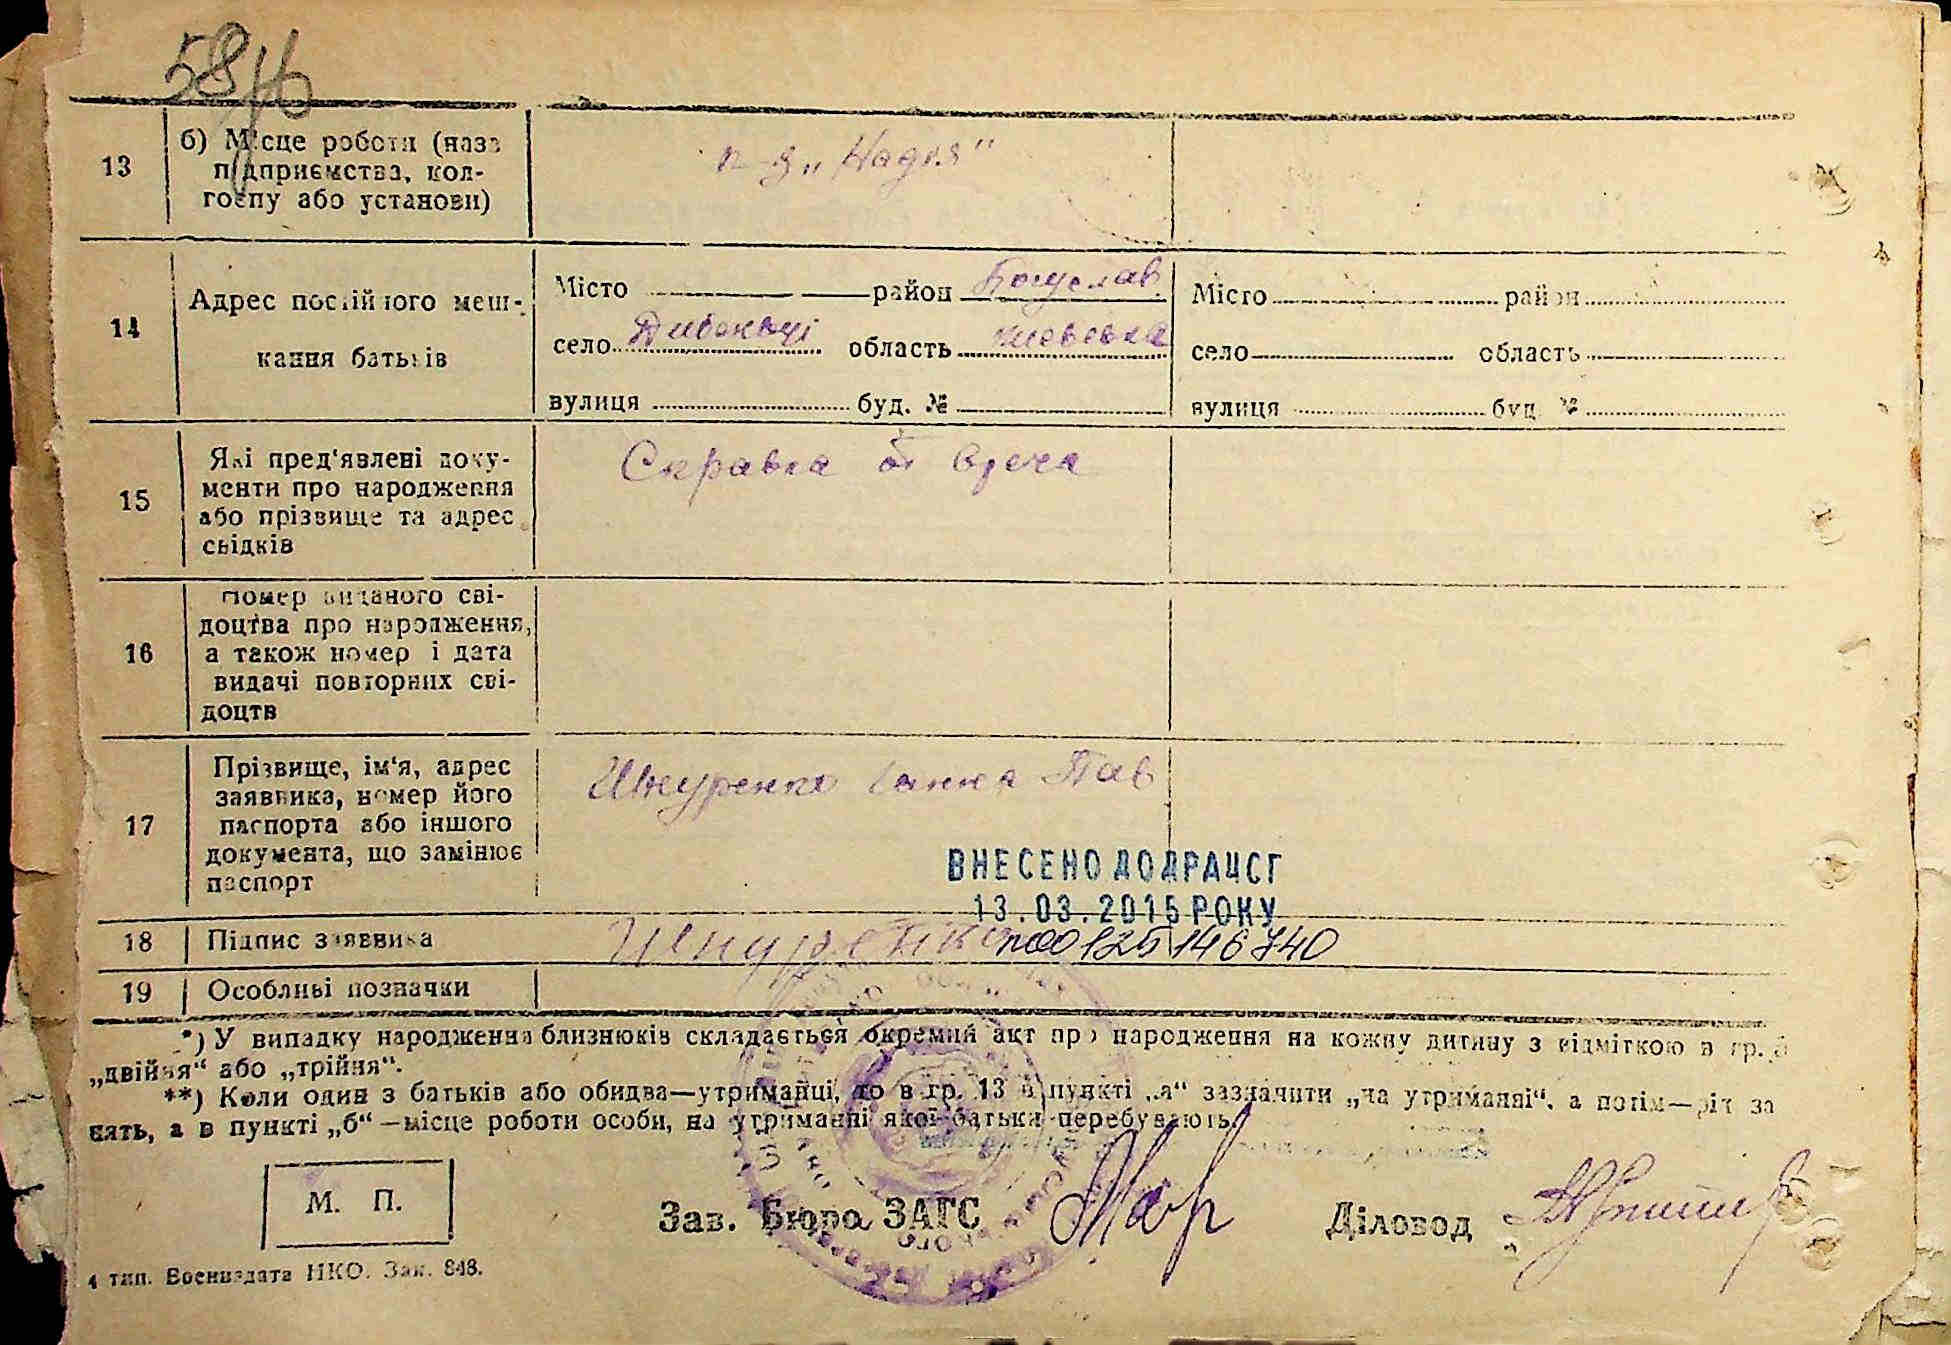 58
13
б) Місце роботи (назв
підприємства, кол-
госпу або установи)
„Надія"
14
Адрес постійного меш-
кання батьків
Місто район Богуслав
село Дибенці область Київська
вулиця буд. №
Місто район
село область
вулиця буд №
15
Які пред'явлені доку-
менти про народження
або прізвище та адрес
свідків
Справка от врача
16
Номер виданого сві-
доцтва про народження,
а також номер і дата
видачі повторних сві-
доцтв
17
Прізвище, ім'я, адрес
заявника, номер його
паспорта або іншого
документа, що замінює
паспорт
Шкуренко Ганна Пав
ВНЕСЕНО ДО ДРАЦСГ
13.03.2015 РОКУ
18
Підпис заявника
Шкуренко
00125146740
19
Особливі позначки
*) У випадку народження близнюків складається окремий акт про народження на кожну дитину з відміткою в гр.
„двійня“ або „трійня“.
**) Коли один з батьків або обидва—утриманці, то в гр. 13 в пункті „а“ зазначити „на утриманні“, а потім—рід за
нять, а в пункті „б“—місце роботи особи, на утриманні якої батьки перебувають.
М. П.
Зав. Бюро ЗАГС
Діловод
4 тип. Воениздата НКО. Зак. 848.